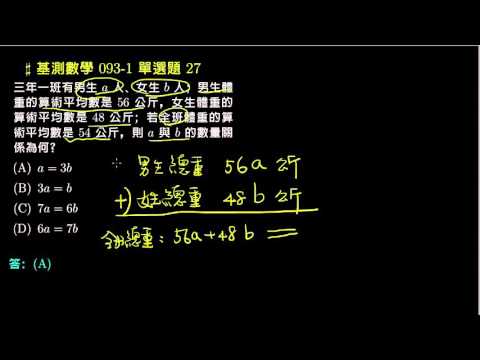 ♯ 基測數學 093-1 單選題 27
三年一班有男生 a 人、女生 b 人，男生體
重的算術平均數是 56 公斤，女生體重的
算術平均數是 48 公斤；若全班體重的算
術平均數是 54 公斤，則 a 與 b 的數量關
係為何？
(A) a = 3b
(B) 3a = b
(C) 7a = 6b
(D) 6a = 7b
答：(A)
男生總重 56a 公斤
+) 女生總重 48b 公斤
全班總重：56a+48b =